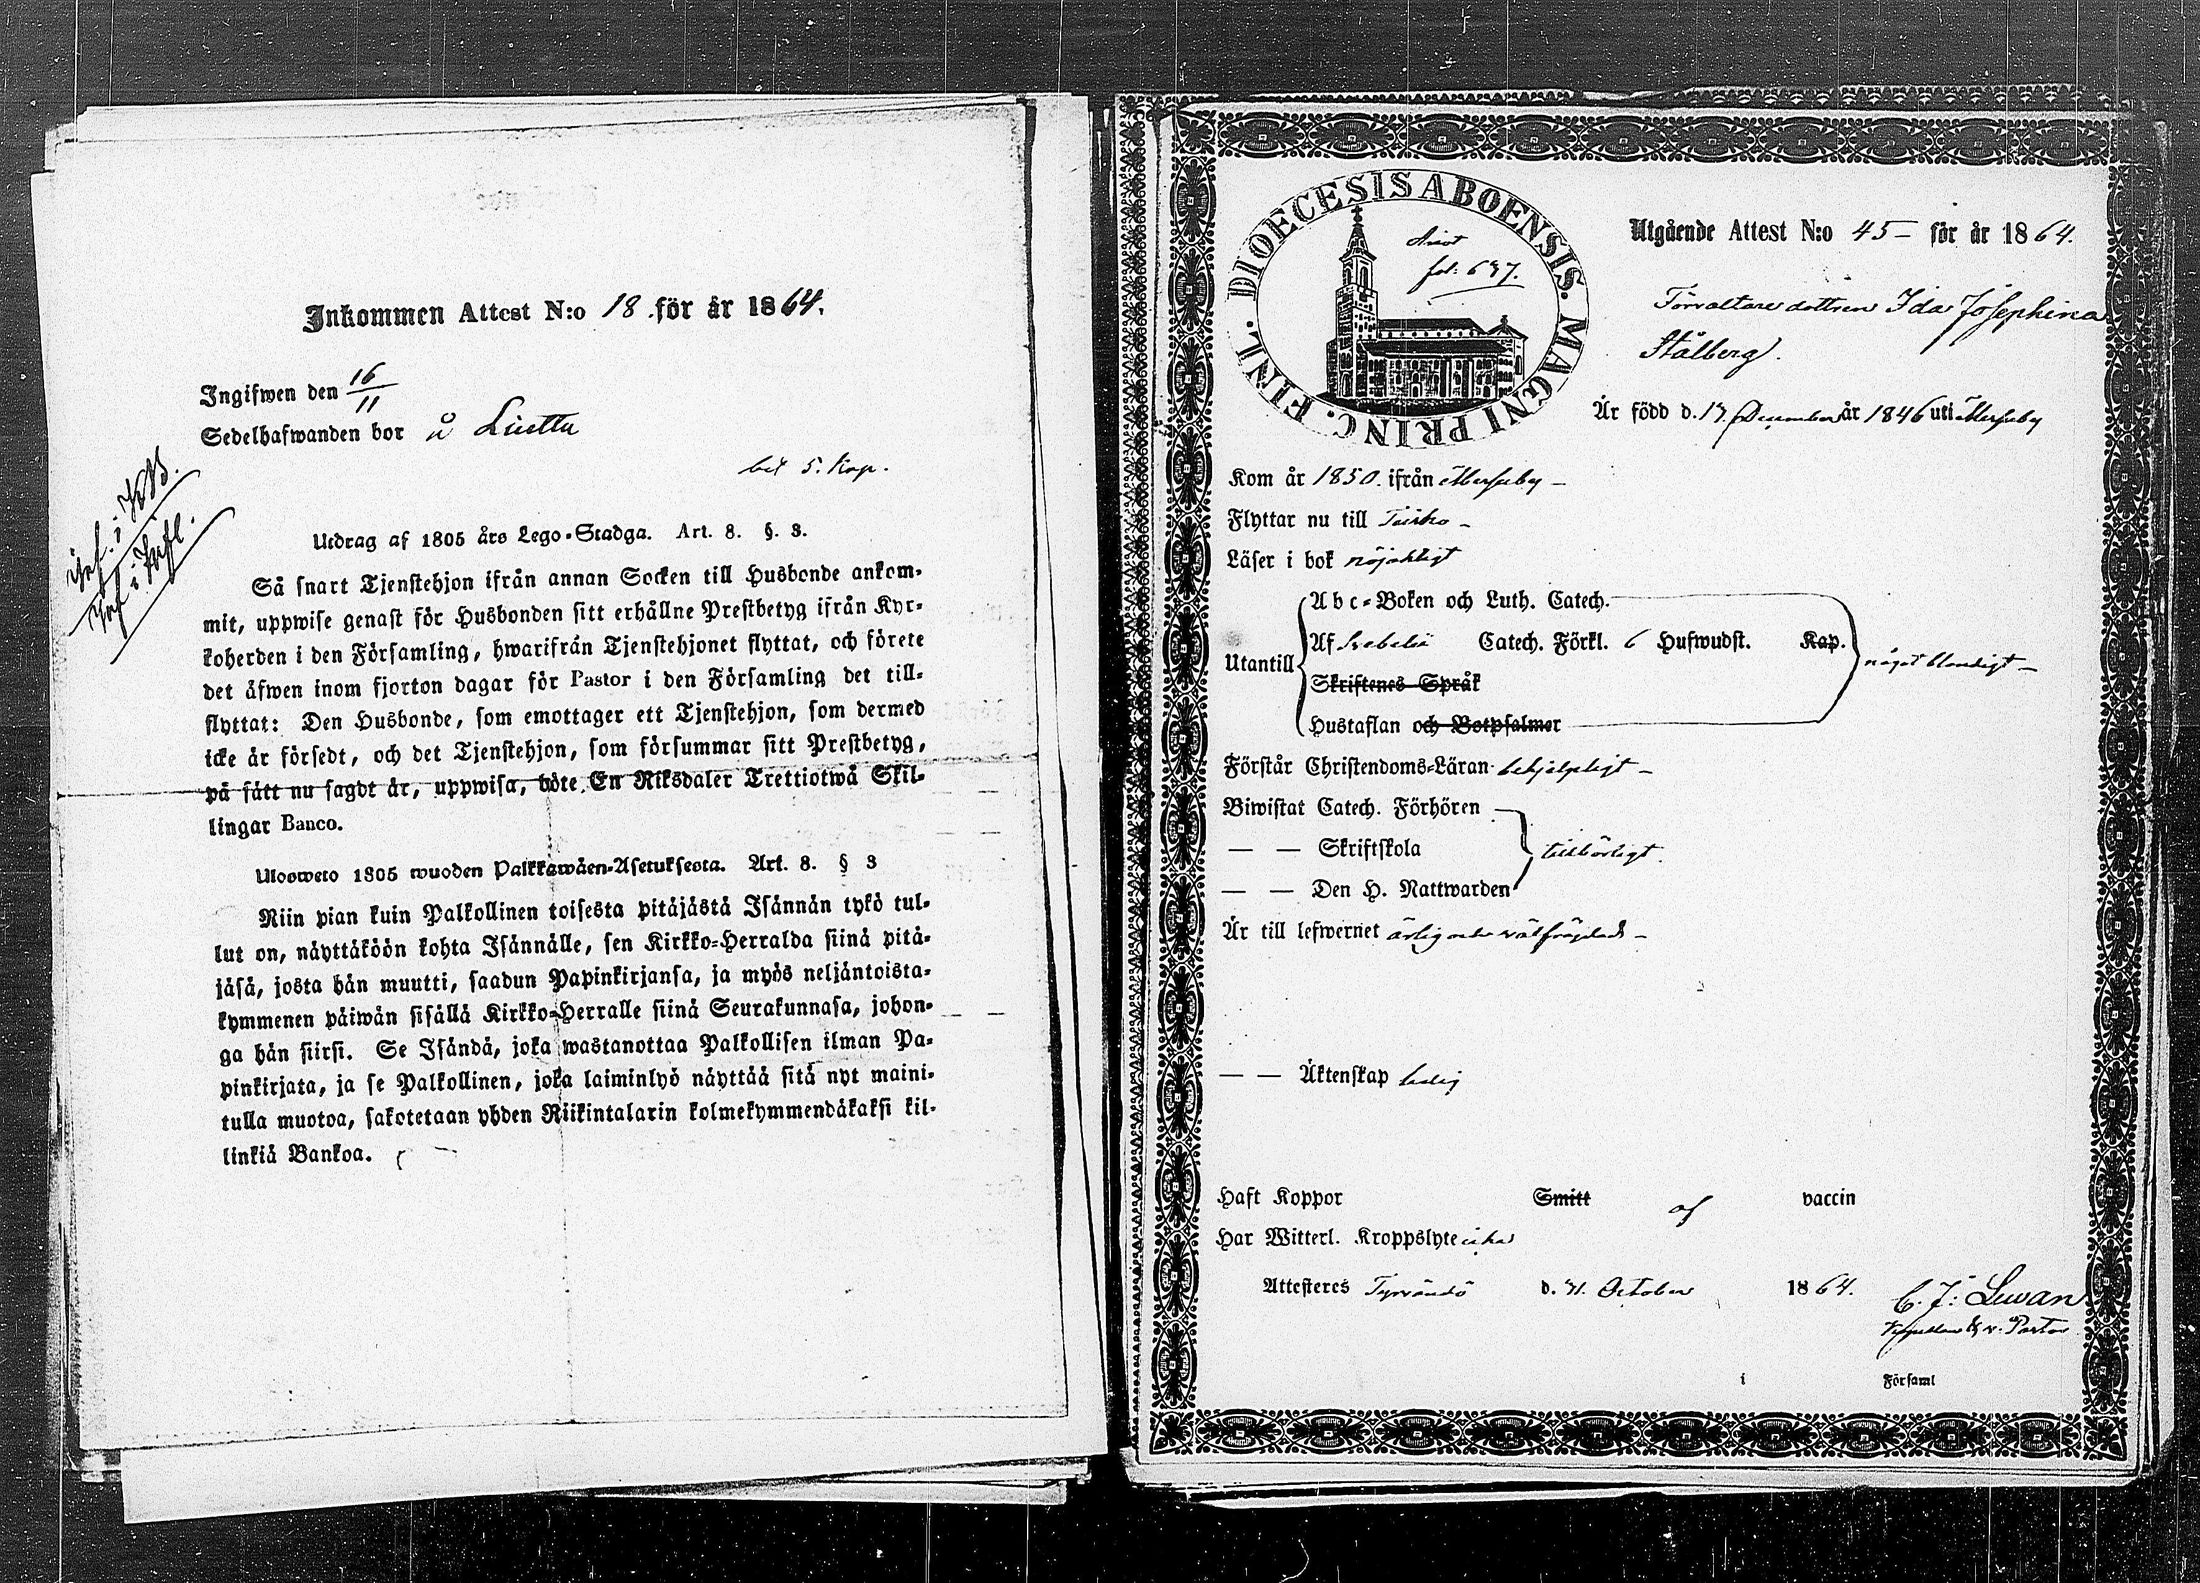 Inkommen Attest N:o 18 för år 1864.
Ingifwen den 16/11
Sedelhafwanden bor å
bet 5. Kop.
Utdrag af 1805 års Lego-Stadga. Art. 8. §. 3.
Så snart Tjenstehjon ifrån annan Socken till Husbonde ankom-
mit, uppwise genast för Husbonden sitt erhållne Prestbetyg ifrån Kyr-
koherden i den Församling, hwarifrån Tjenstehjonet flyttat, och förete
det äfwen inom fjorton dagar för Pastor i den Församling det till-
flyttat: Den Husbonde, som emottager ett Tjenstehjon, som dermed
icke är försedt, och det Tjenstehjon, som försummar sitt Prestbetyg,
på sätt nu sagdt är, uppwisa, böte En Riksdaler Trettiotwå Skil-
lingar Banco.
Ulosweto 1805 wuoden Palkkawäen-Asetuksesta. Art. 8. § 3
Niin pian kuin Palkollinen toisesta pitäjästä Isännän tykö tul-
lut on, näyttäköön kohta Isännälle, sen Kirkko-Herralda siinä pitä-
jäsä, josta hän muutti, saadun Papinkirjansa, ja myös neljäntoista-
kymmenen päiwän sisällä Kirkko-Herralle siinä Seurakunnasa, johon-
ga hän siirsi. Se Isändä, joka wastanottaa Palkollisen ilman Pa-
pinkirjata, ja se Palkollinen, joka laiminlyö näyttää sitä nyt maini-
tulla muotoa, sakotetaan yhden Riikintalarin kolmekymmendäkaksi kil-
linkiä Bankoa.
DIOECESIS ABOENSIS. MAGNI PRINC. FINL.
fol: 637.
Utgående Attest N:o 45 – för år 1864.
Förvaltare dottren Ida Josephina
Stålberg.
Är född d. 17 December år 1846 uti
Kom år 1850. ifrån
Flyttar nu till
Läser i bok nöjaktigt
Utantill
Abc-Boken och Luth. Catech.
Af Svebelii Catech. Förkl. 6 Hufwudst. Kap.
Skriftenes Språk
Hustaflan och Botpsalmer
något
Förstår Christendoms-Läran behjelpligt –
Biwistat Catech. Förhören
— — Skriftskola
— — Den H. Nattwarden
tillbörligt.
Är till lefwernet ärlig och välfräjdad –
— — Äktenskap ledig
Haft Koppor Smitt af vaccin
Har Witterl. Kroppslyte icke
Attesteres Tyrvändö d. 31. October 1864.
C. J: Lewan
Kapellan & v. Pastor
i Församl